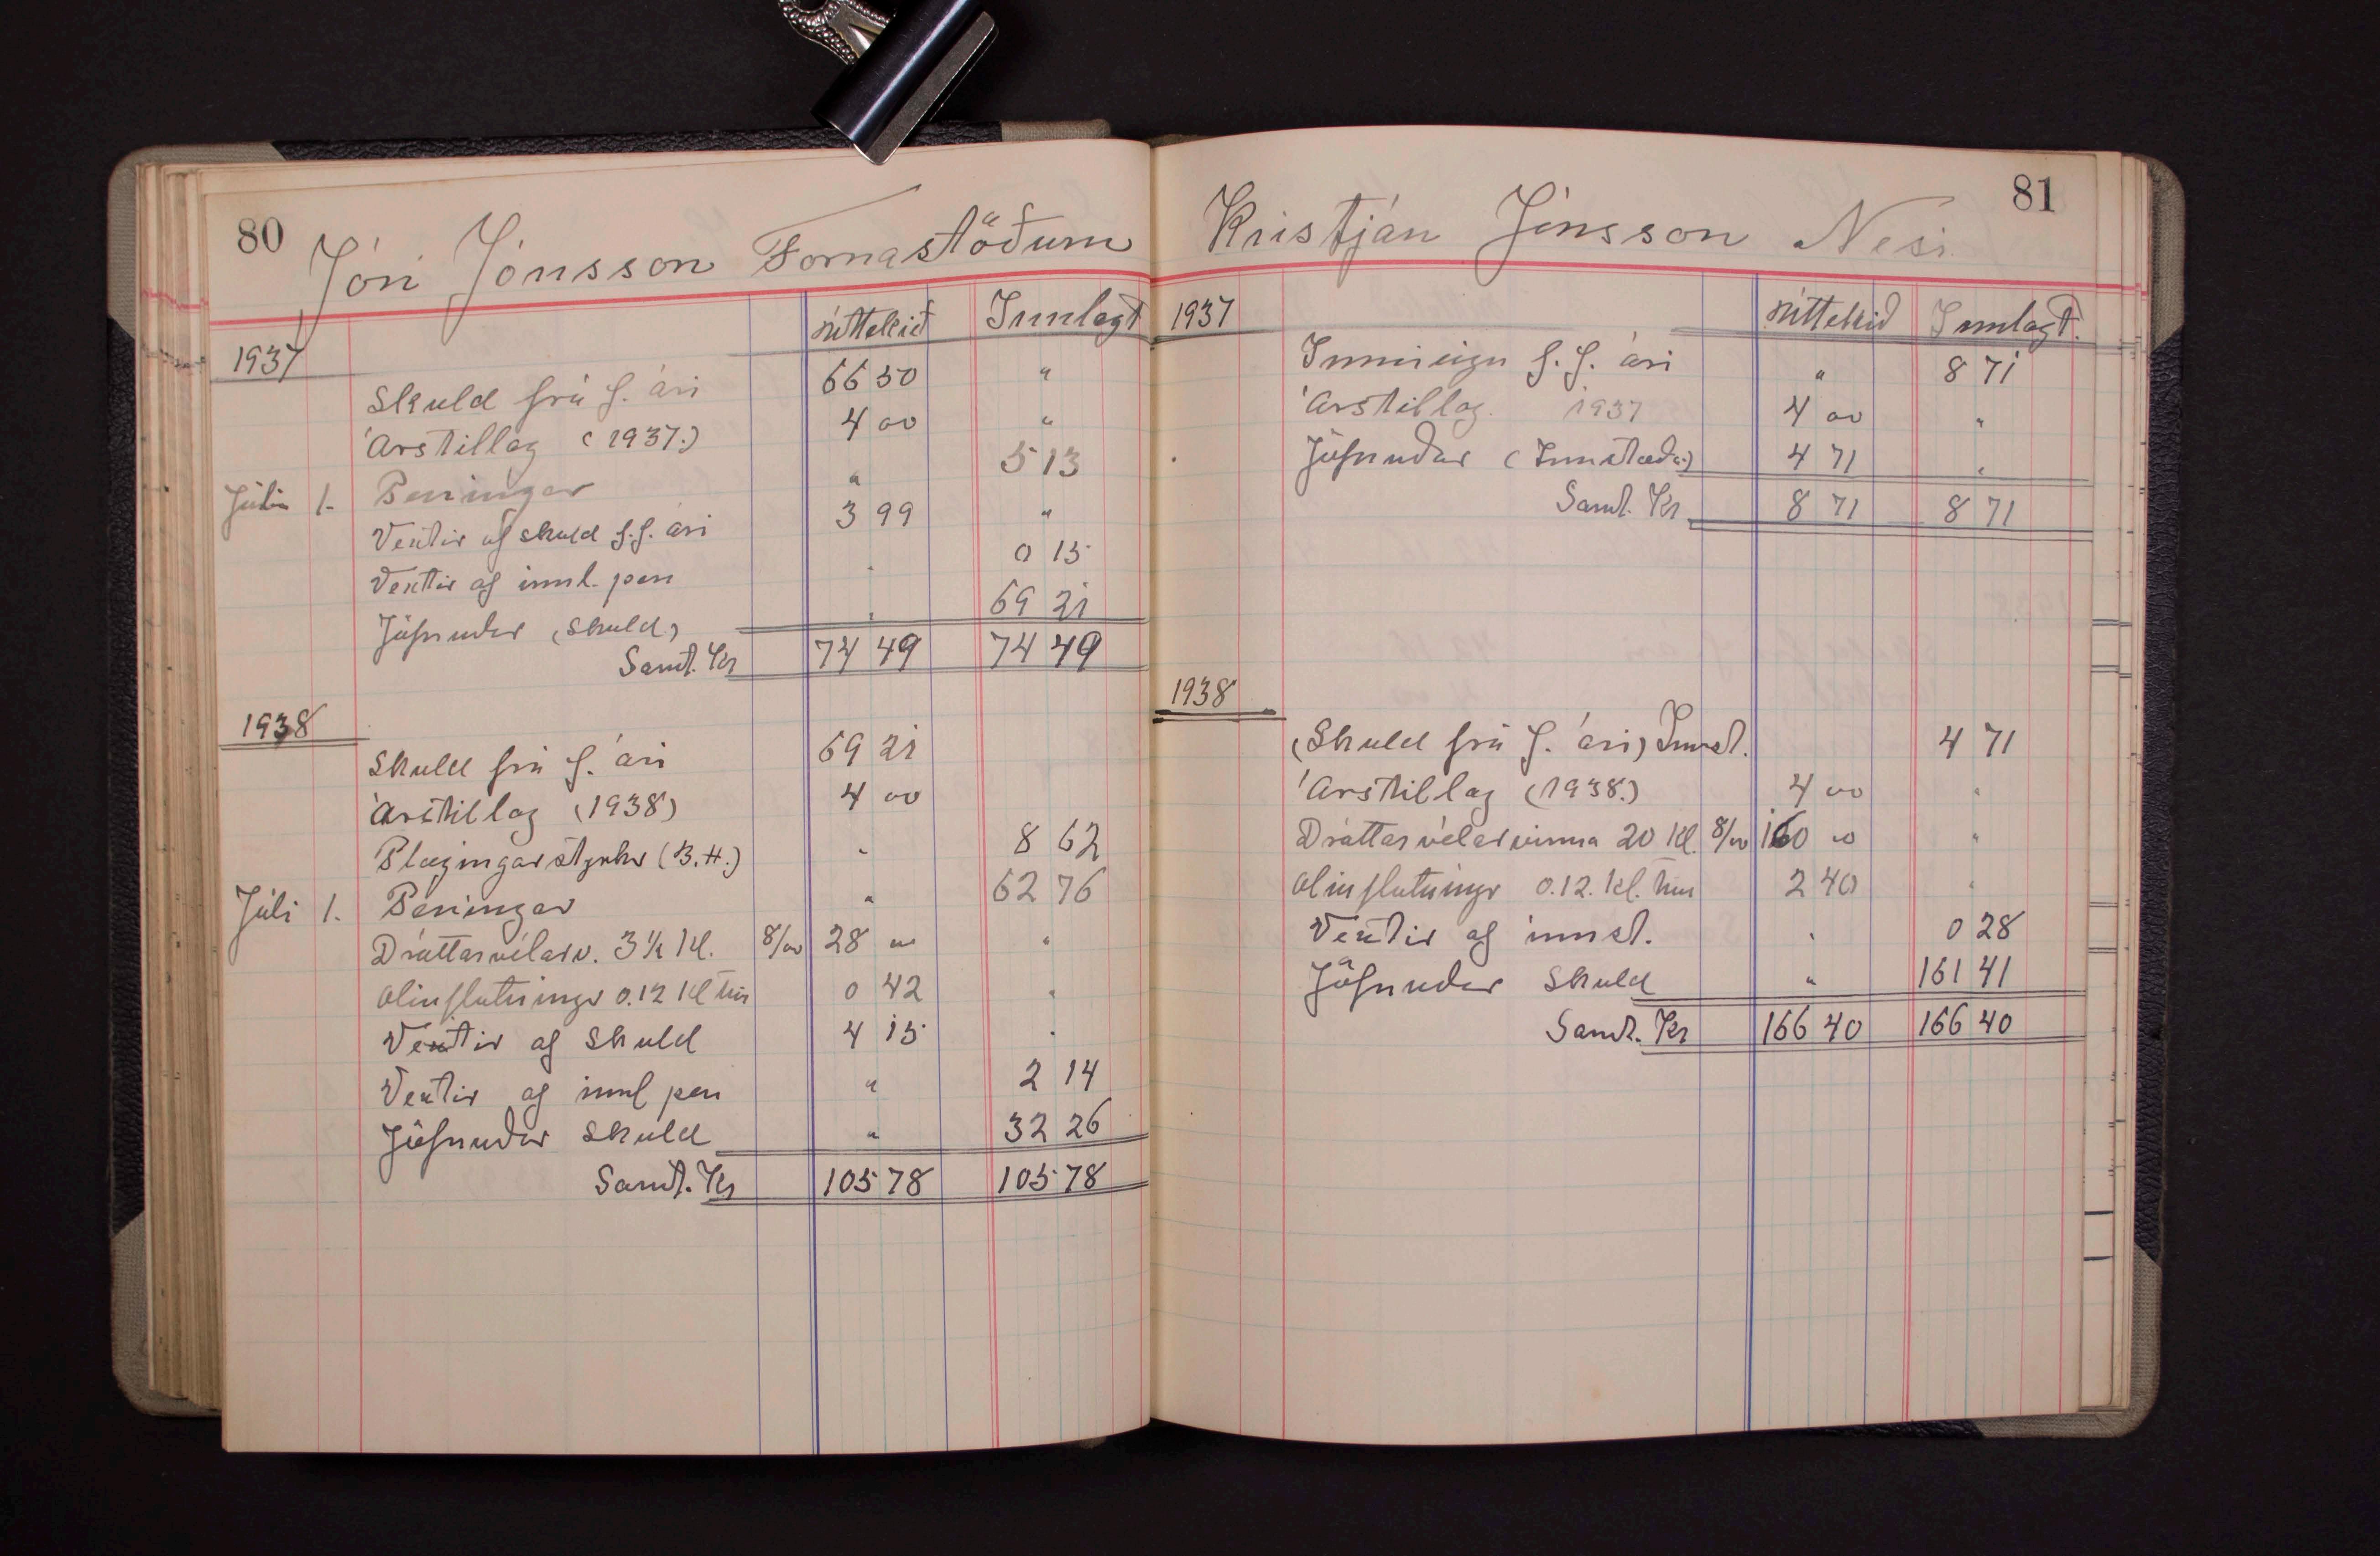 80
Jón Jónsson Fornastöðum
Úttekið Innlagt
1937
Skuld frá f. ári 66 50 "
Árstillag (1937.) 4 00 "
Júlí 1. Peningar " 5 13
Vextir af skuld f.f. ári 3 99 "
Vextir af innl. pen " 0 15
Jöfnuður (skuld.) " 69 21
Samt. Kr 74 49 74 49
1938
Skuld frá f. ári 69 21
Árstillag (1938) 4 00
Plægingarstyrkur (B.H.) " 8 62
Júlí 1. Peningar " 62 76
Dráttarvélarv. 3½ kl. 8/00 28 00 "
Olíuflutningur 0.12 kl tím 0 42 "
Vextir af skuld 4 15 "
Vextir af innl pen " 2 14
Jöfnuður skuld " 32 26
Samt. Kr 105 78 105 78
81
Kristján Jónsson Nesi
1937 Úttekið Innlagt.
Inneign f.f. ári " 8 71
Árstillag 1937 4 00 "
Jöfnuður (Innstæða) 4 71 "
Samt. Kr 8 71 8 71
1938
(Skuld frá f. ári) Innst. 4 71
Árstillag (1938.) 4 00 "
Dráttarvélarvinna 20 kl. 8/00 160 00 "
Olíuflutningr 0.12. kl. tím 2 40 "
Vextir af innst. " 0 28
Jöfnuður skuld " 161 41
Samt. Kr 166 40 166 40